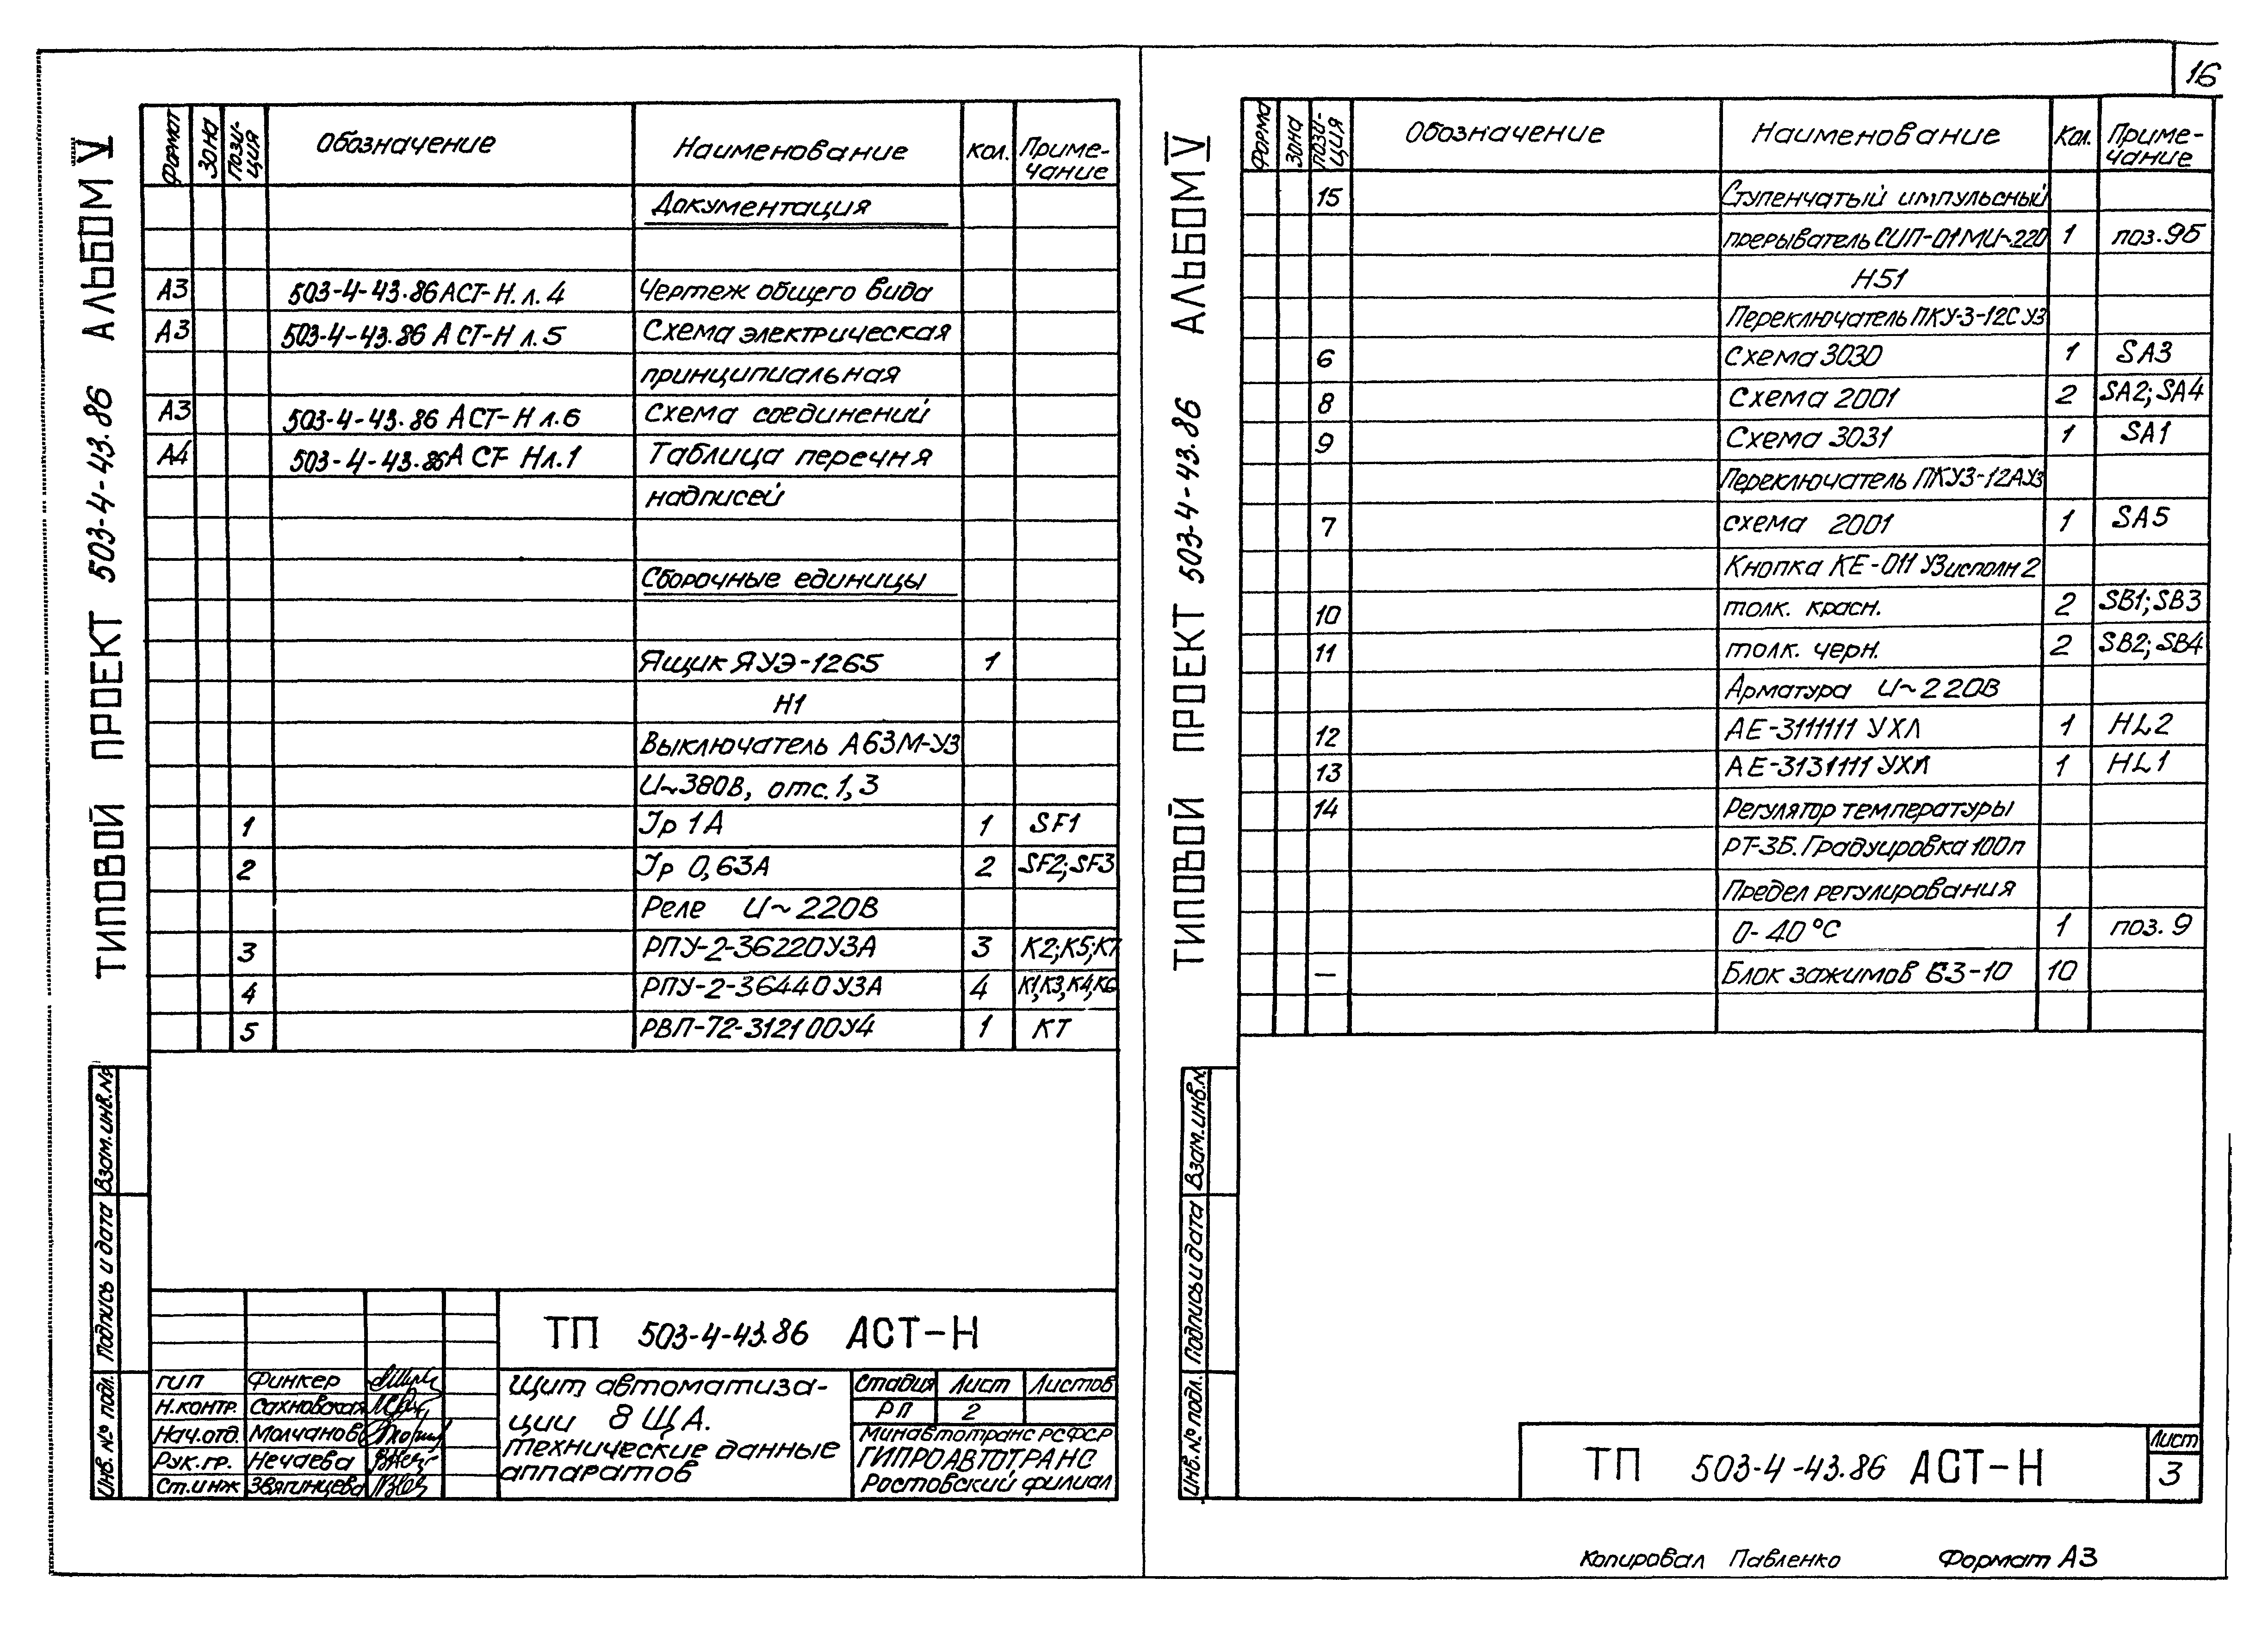 16
ТИПОВОЙ ПРОЕКТ 503-4-43.86 АЛЬБОМ V
Формат Зона Пози- Обозначение Наименование Кол. Приме-
ция чание
Документация
А3 503-4-43.86 АСТ-Н.л.4 Чертеж общего вида
А3 503-4-43.86 АСТ-Н л.5 Схема электрическая
принципиальная
А3 503-4-43.86 АСТ-Н л.6 Схема соединений
А4 503-4-43.86 АСТ- Нл.1 Таблица перечня
надписей
Сборочные единицы
Ящик ЯУЭ-1265 1
Н1
Выключатель А63М-У3
U~380В, отс.1,3
1 Iр 1А 1 SF1
2 Iр 0,63А 2 SF2;SF3
Реле U~220В
3 РПУ-2-36220У3А 3 К2;К5;К7
4 РПУ-2-36440У3А 4 К1,К3,К4,К6
5 РВП-72-3121 00У4 1 КТ
Инв. № подл. Подпись и дата Взам.инв.№
ТП 503-4-43.86 АСТ-Н
ГИП Финкер
Н.контр. Сахновская
Нач.отд. Молчанов
Рук.гр. Нечаева
Ст.инж Звягинцева
Щит автоматиза-
ции 8 ЩА.
Технические данные
аппаратов
Стадия Лист Листов
РП 2
Минавтотранс РСФСР
ГИПРОАВТОТРАНС
Ростовский филиал
ТИПОВОЙ ПРОЕКТ 503-4-43.86 АЛЬБОМ V
Форма Зона Пози- Обозначение Наименование Кол. Приме-
ция чание
15 Ступенчатый импульсный
прерыватель СИП-01МU~220 1 поз.9б
Н51
Переключатель ПКУ-3-12С У3
6 Схема 3030 1 SA3
8 Схема 2001 2 SA2;SA4
9 Схема 3031 1 SA1
Переключатель ПКУ3-12АУ3
7 схема 2001 1 SA5
Кнопка КЕ-011 У3исполн 2
10 толк. красн. 2 SB1;SB3
11 толк. черн. 2 SB2;SB4
Арматура U~220В
12 АЕ-3111111 УХЛ 1 HL2
13 АЕ-3131111 УХЛ 1 HL1
14 Регулятор температуры
РТ-3Б. Градуировка 100п
Предел регулирования
0-40°С 1 поз.9
— Блок зажимов БЗ-10 10
Инв.№ подл. Подпись и дата Взам.инв.№
ТП 503-4-43.86 АСТ-Н
Лист
3
Копировал Павленко Формат А3